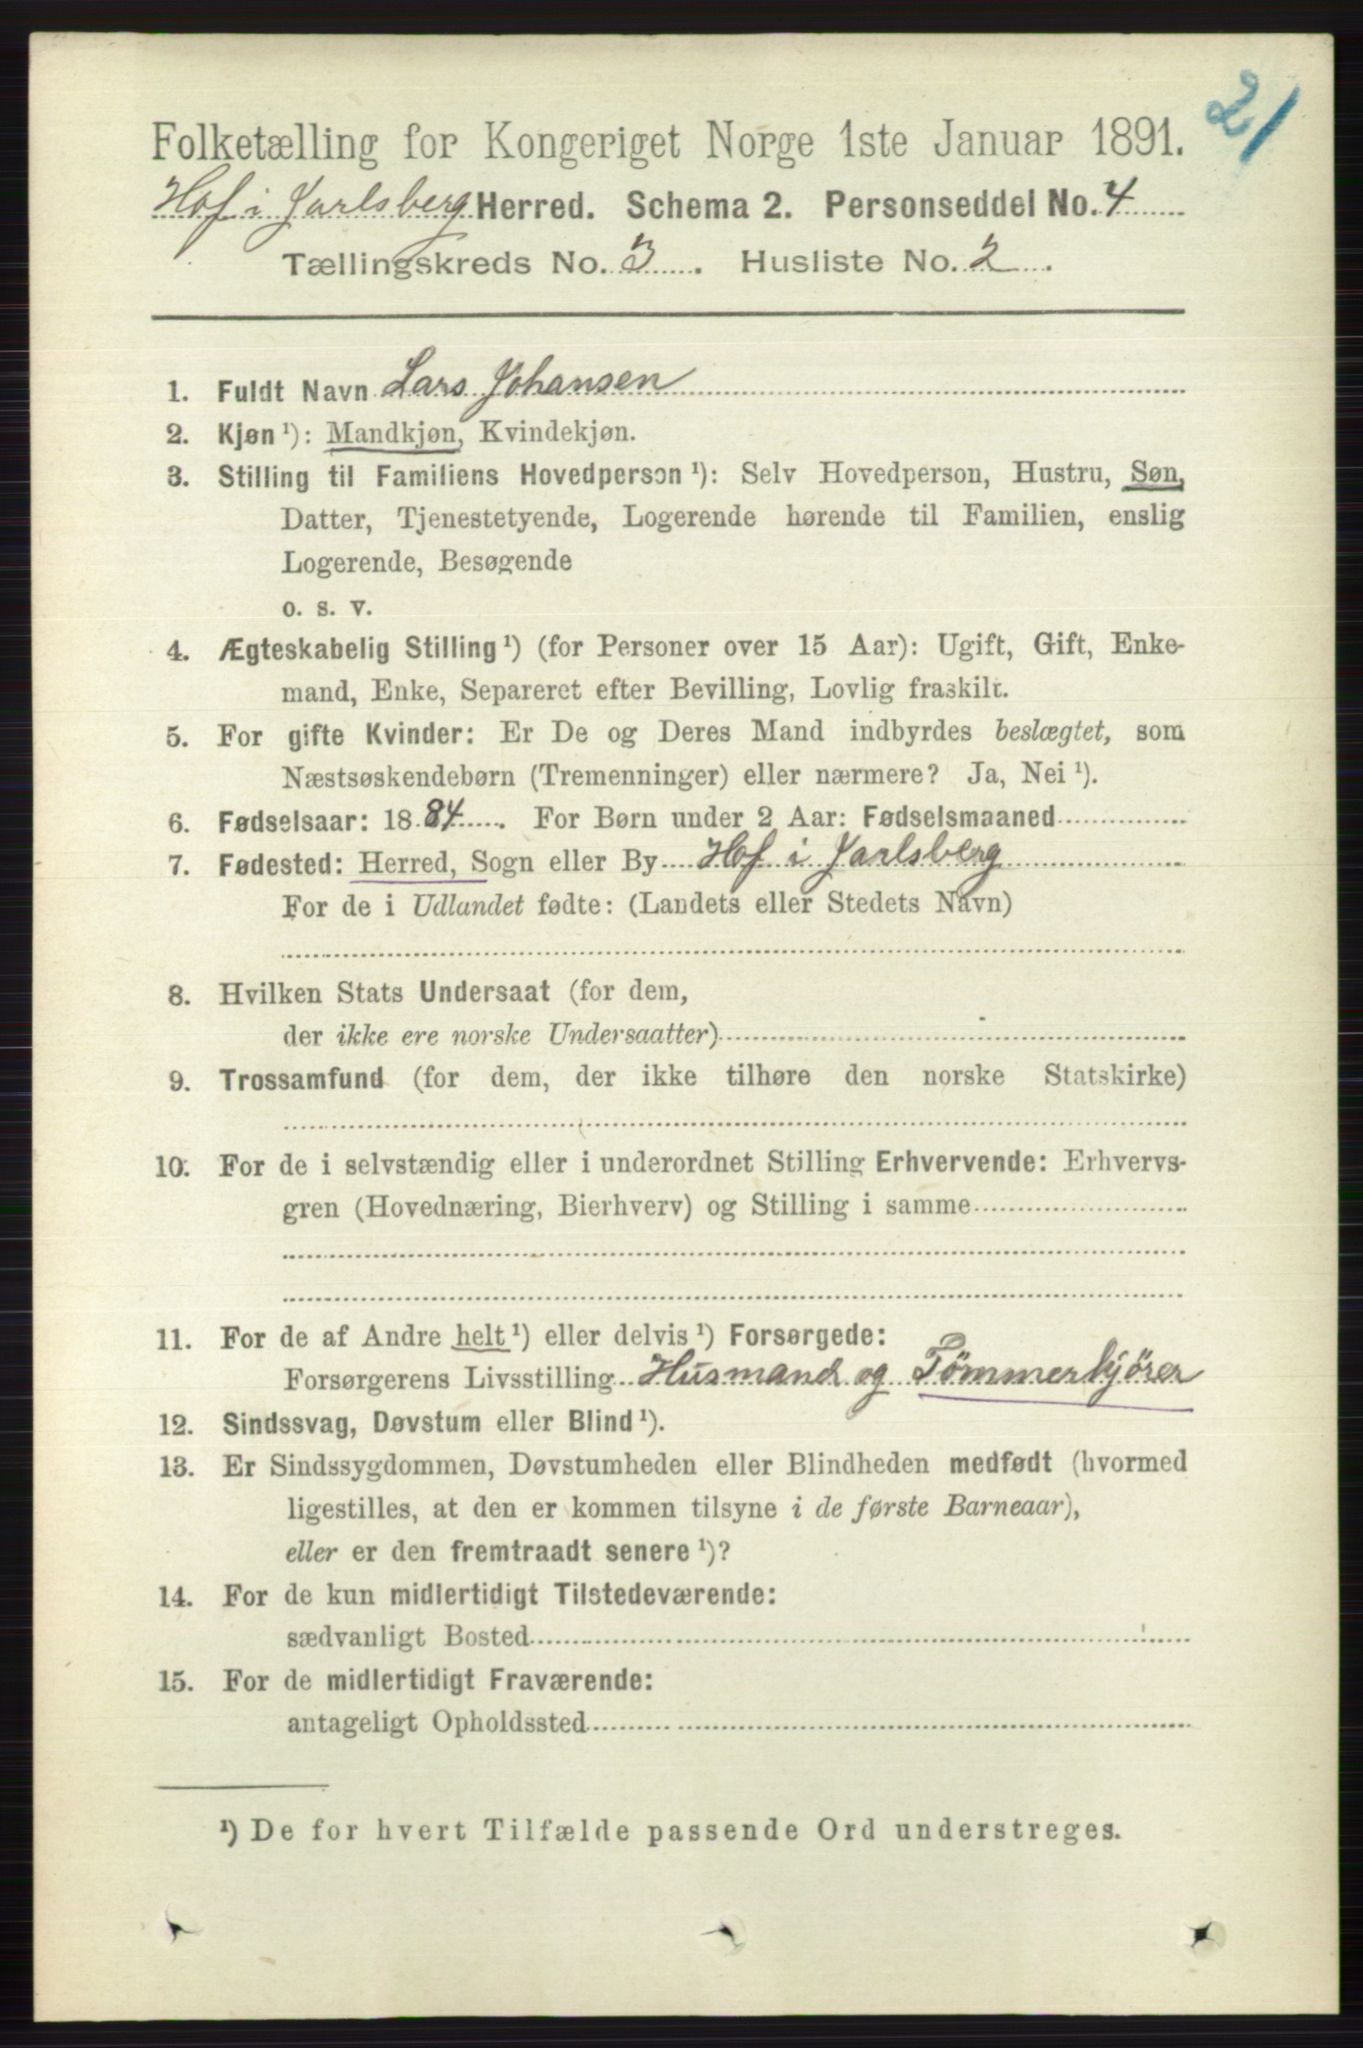 21
Folketælling for Kongeriget Norge 1ste Januar 1891.
Hof i Jarlsberg Herred. Schema 2. Personseddel No. 4
Tællingskreds No. 3. Husliste No. 2.
1. Fuldt Navn Lars Johansen
2. Kjøn ¹): Mandkjøn, Kvindekjøn.
3. Stilling til Familiens Hovedperson ¹): Selv Hovedperson, Hustru, Søn,
Datter, Tjenestetyende, Logerende hørende til Familien, enslig
Logerende, Besøgende
o. s. v.
4. Ægteskabelig Stilling ¹) (for Personer over 15 Aar): Ugift, Gift, Enke-
mand, Enke, Separeret efter Bevilling, Lovlig fraskilt.
5. For gifte Kvinder: Er De og Deres Mand indbyrdes beslægtet, som
Næstsøskendebørn (Tremenninger) eller nærmere? Ja, Nei ¹).
6. Fødselsaar: 1884. For Børn under 2 Aar: Fødselsmaaned
7. Fødested: Herred, Sogn eller By Hof i Jarlsberg
For de i Udlandet fødte: (Landets eller Stedets Navn)
8. Hvilken Stats Undersaat (for dem,
der ikke ere norske Undersaatter)
9. Trossamfund (for dem, der ikke tilhøre den norske Statskirke)
10. For de i selvstændig eller i underordnet Stilling Erhvervende: Erhvervs-
gren (Hovednæring, Bierhverv) og Stilling i samme
11. For de af Andre helt ¹) eller delvis ¹) Forsørgede:
Forsørgerens Livsstilling Husmand og Tömmerkjörer
12. Sindssvag, Døvstum eller Blind ¹).
13. Er Sindssygdommen, Døvstumheden eller Blindheden medfødt (hvormed
ligestilles, at den er kommen tilsyne i de første Barneaar),
eller er den fremtraadt senere ¹)?
14. For de kun midlertidigt Tilstedeværende:
sædvanligt Bosted
15. For de midlertidigt Fraværende:
antageligt Opholdssted
¹) De for hvert Tilfælde passende Ord understreges.